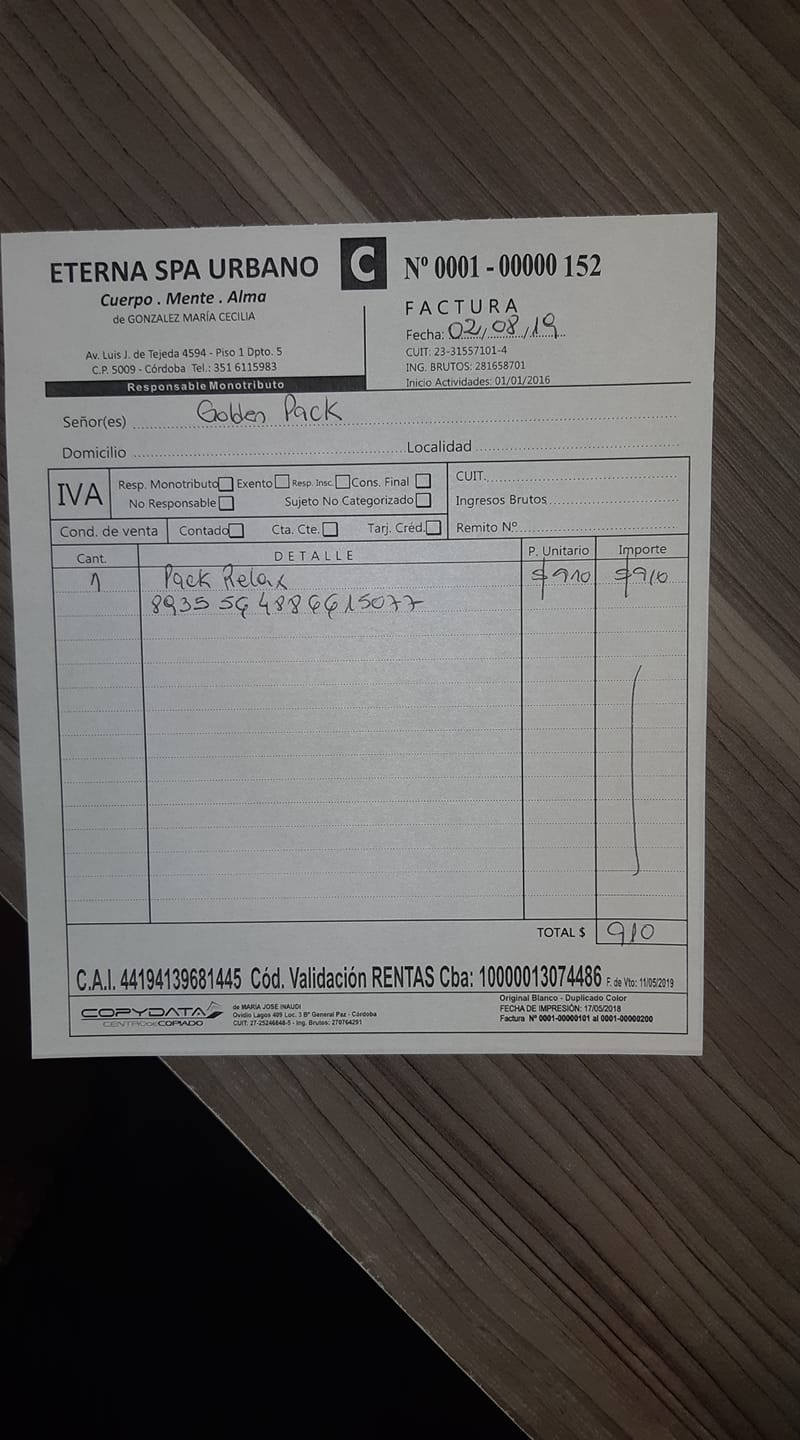 ETERNA SPA URBANO
Cuerpo . Mente . Alma
de GONZALEZ MARÍA CECILIA
Av. Luis J. de Tejeda 4594 - Piso 1 Dpto. 5
C.P. 5009 - Córdoba Tel.: 351 6115983
Responsable Monotributo
C
Nº 0001 - 00000 152
FACTURA
Fecha: 02/08/19
CUIT: 23-31557101-4
ING. BRUTOS: 281658701
Inicio Actividades: 01/01/2016
Señor(es) Golden Pack
Domicilio Localidad
IVA
Resp. Monotributo Exento Resp. Insc. Cons. Final
No Responsable Sujeto No Categorizado
CUIT.
Ingresos Brutos
Cond. de venta Contado Cta. Cte. Tarj. Créd. Remito Nº
Cant. DETALLE P. Unitario Importe
1 Pack Relax $910 $910
8935 56 4886615077
TOTAL $ 910
C.A.I. 44194139681445 Cód. Validación RENTAS Cba: 10000013074486 F. de Vto: 11/05/2019
COPYDATA
CENTRO DE COPIADO
de MARIA JOSE INAUDI
Ovidio Lagos 409 Loc. 3 Bº General Paz - Córdoba
CUIT: 27-25246848-5 - Ing. Brutos: 270764291
Original Blanco - Duplicado Color
FECHA DE IMPRESIÓN: 17/05/2018
Factura Nº 0001-00000101 al 0001-00000200